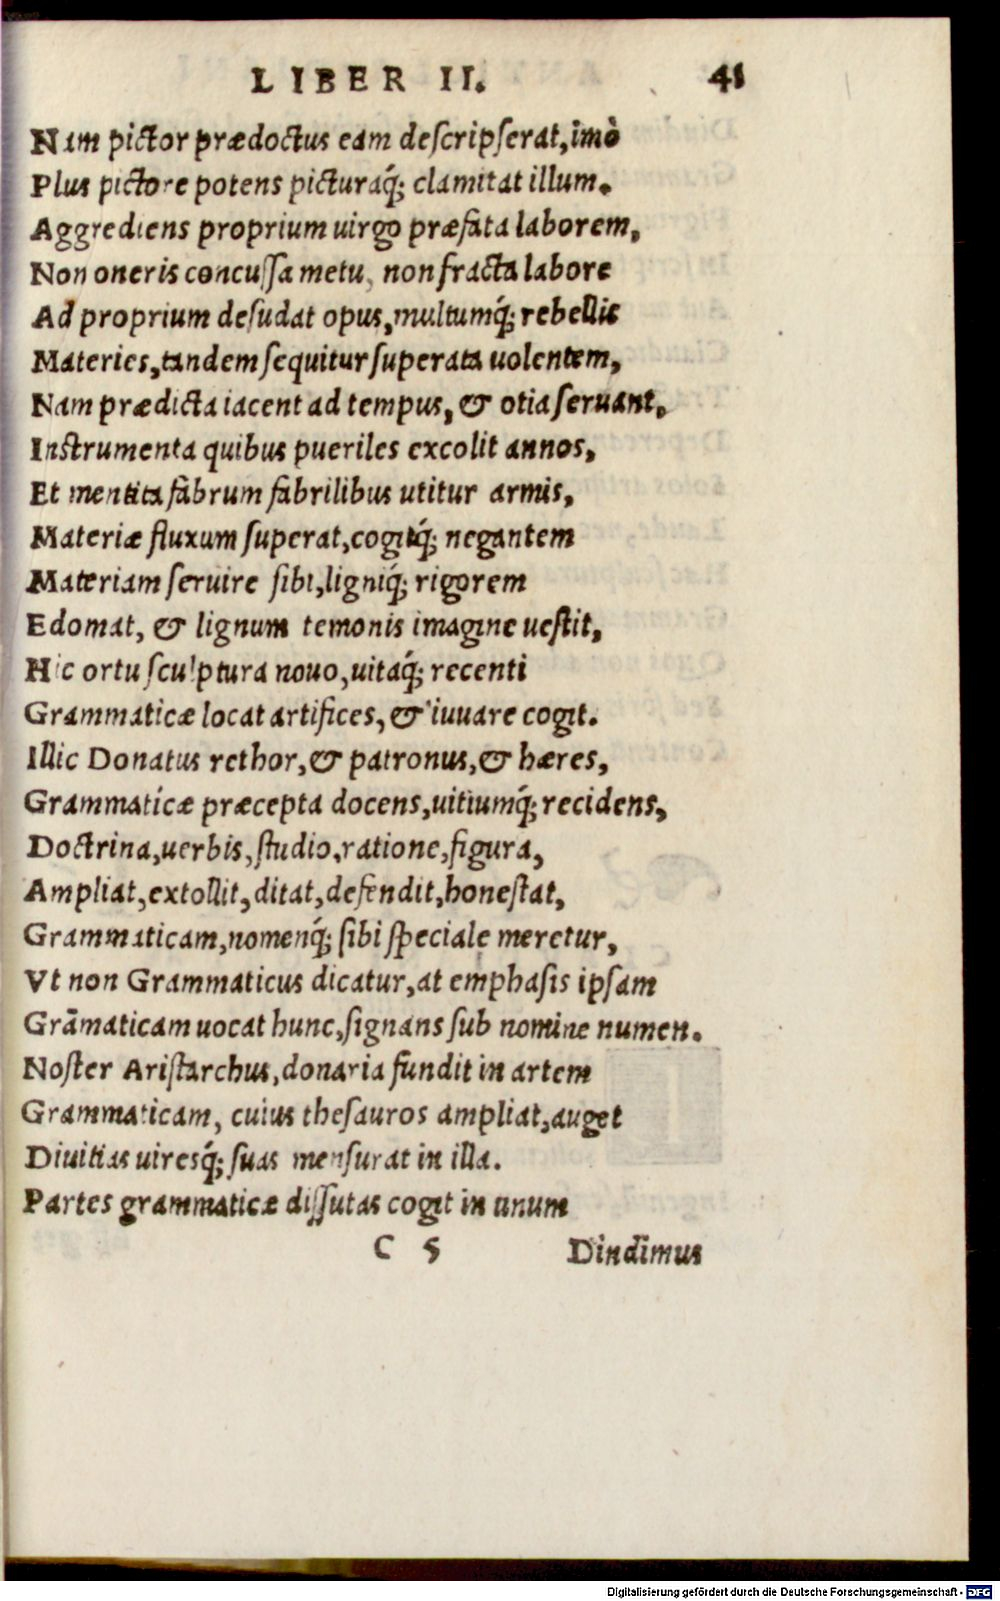 LIBER II. 41
Nam pictor prædoctus eam descripserat, imò
Plus pictore potens picturaq́; clamitat illum.
Aggrediens proprium uirgo præfata laborem,
Non oneris concussa metu, non fracta labore
Ad proprium desudat opus, multumq́; rebellis
Materies, tandem sequitur superata uolentem,
Nam prædicta iacent ad tempus, & otia seruant,
Instrumenta quibus pueriles excolit annos,
Et mentita fabrum fabrilibus utitur armis,
Materiæ fluxum superat, cogitq́; negantem
Materiam seruire sibi, ligniq́; rigorem
Edomat, & lignum temonis imagine uestit,
Hic ortu sculptura nouo, uitaq́; recenti
Grammaticæ locat artifices, & iuuare cogit.
Illic Donatus rethor, & patronus, & hæres,
Grammaticæ præcepta docens, uitiumq́; recidens,
Doctrina, uerbis, studio, ratione, figura,
Ampliat, extollit, ditat, defendit, honestat,
Grammaticam, nomenq́; sibi speciale meretur,
Vt non Grammaticus dicatur, at emphasis ipsam
Grāmaticam uocat hunc, signans sub nomine numen.
Noster Aristarchus, donaria fundit in artem
Grammaticam, cuius thesauros ampliat, auget
Diuitias uiresq́; suas mensurat in illa.
Partes grammaticæ dissutas cogit in unum
C 5 Dindimus
Digitalisierung gefördert durch die Deutsche Forschungsgemeinschaft - DFG